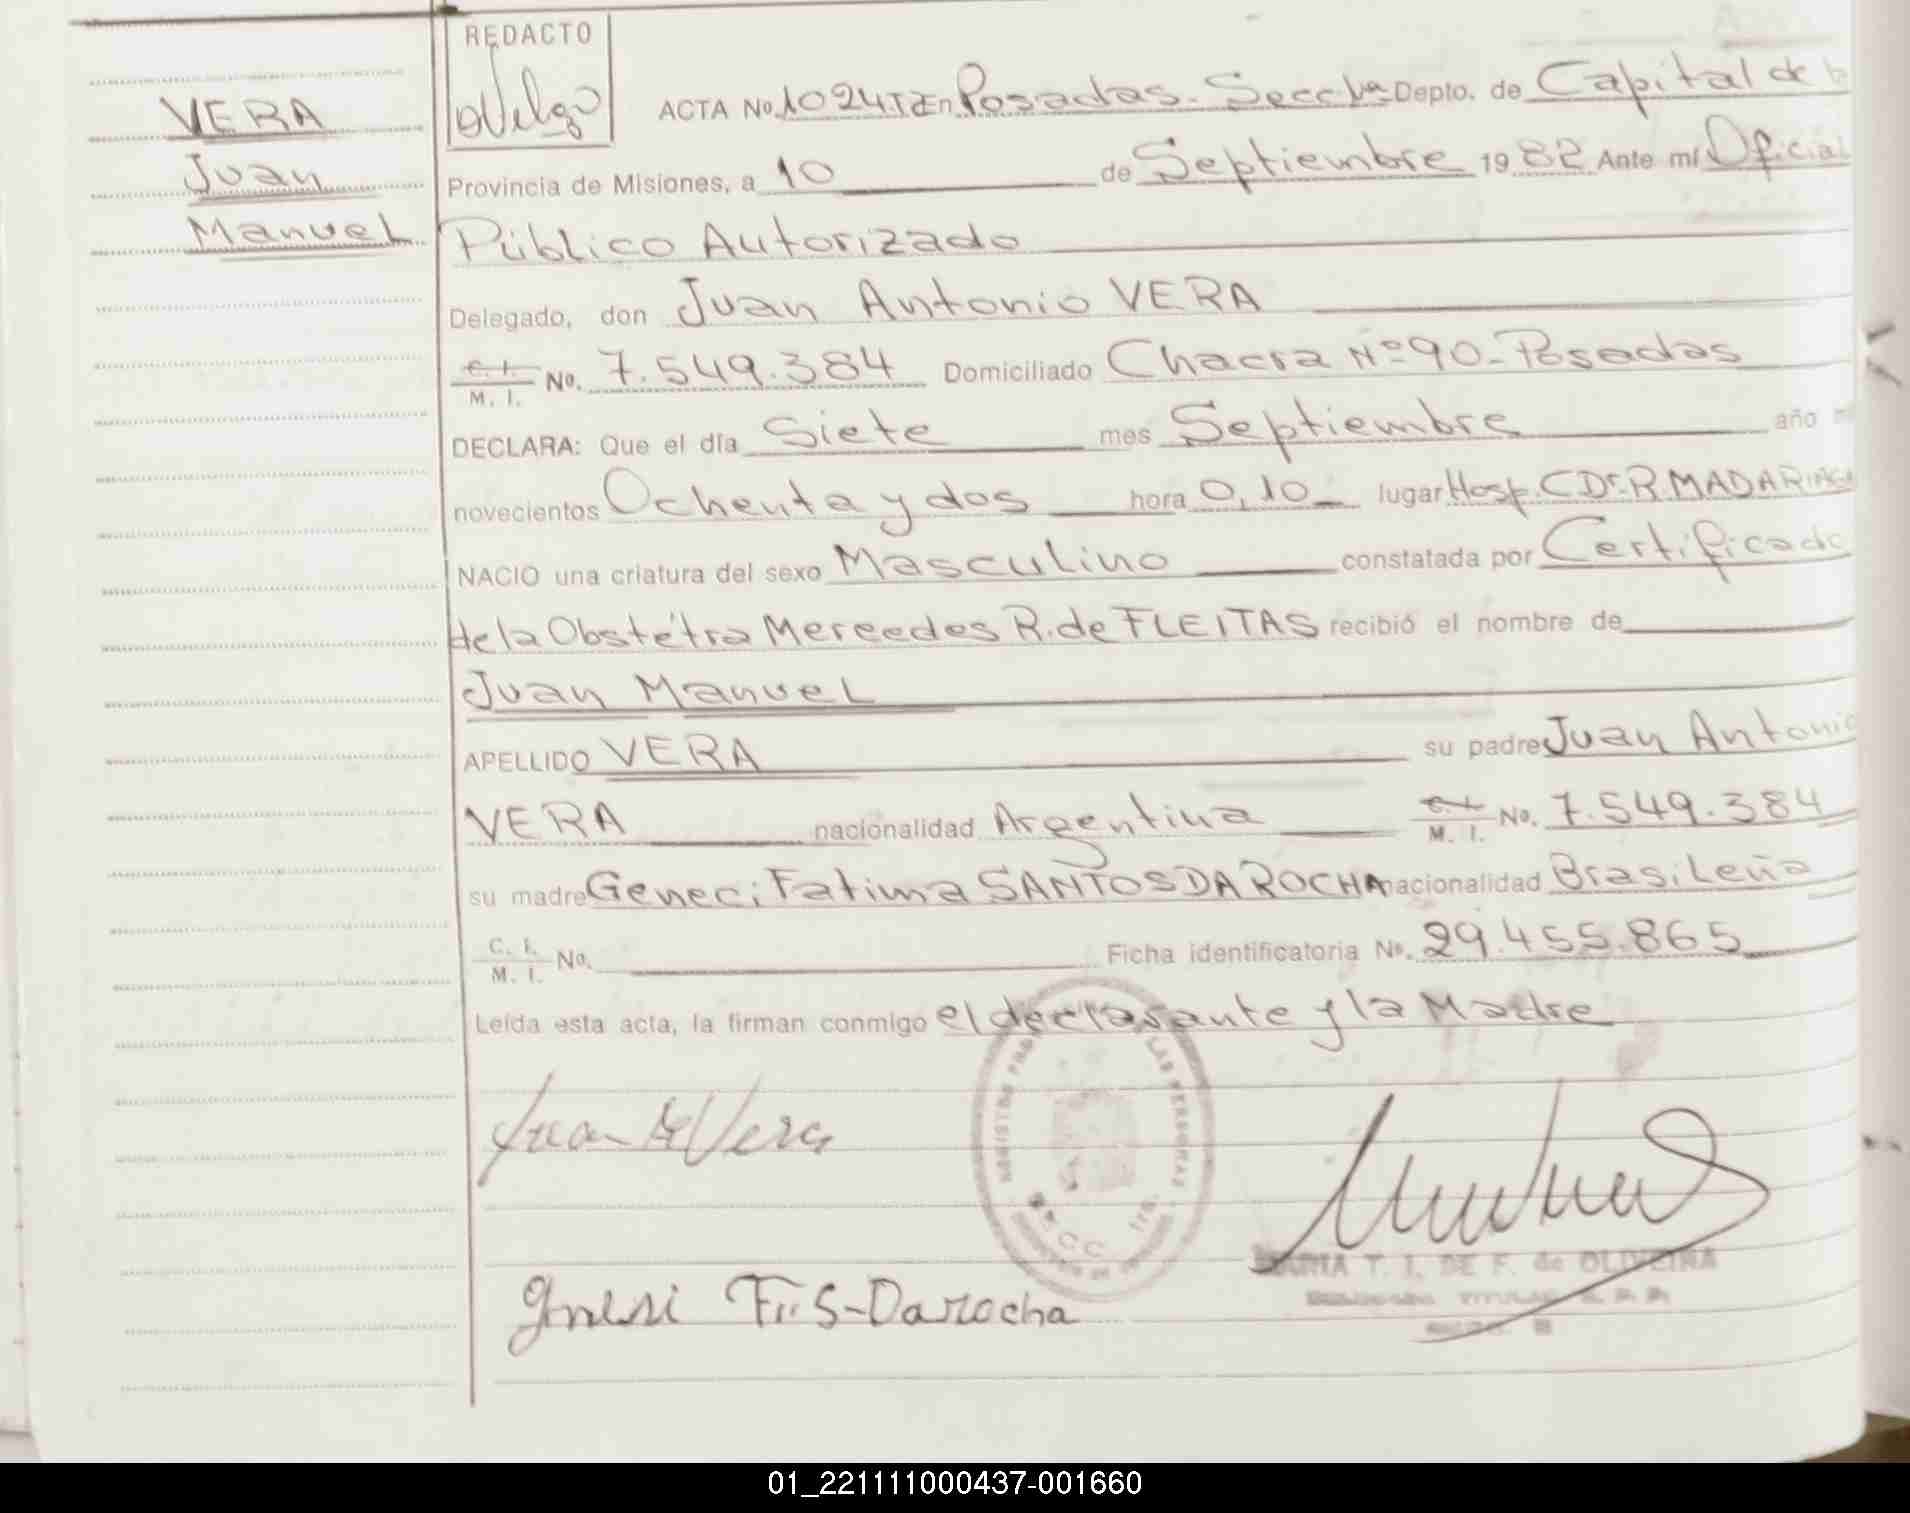 REDACTO
VERA
Juan
Manuel
ACTA No. 1024 TI En Posadas. Secc 1ª Depto. de Capital de
Provincia de Misiones, a 10 de Septiembre 19 82 Ante mí Oficial
Público Autorizado
Delegado, don Juan Antonio VERA
C. I. M. I. No. 7.549.384 Domiciliado Chacra Nº 90-Posadas
DECLARA: Que el día Siete mes Septiembre año
novecientos Ochenta y dos hora 0,10 lugar Hosp. C Dr. R. MADARIAGA
NACIO una criatura del sexo Masculino constatada por Certificado
de la Obstétra Mercedes R. de FLEITAS recibió el nombre de
Juan Manuel
APELLIDO VERA su padre Juan Antonio
VERA nacionalidad Argentina C. I. M. I. No. 7.549.384
su madre Geneci Fatima SANTOS DA ROCHA nacionalidad Brasileña
C. I. M. I. No. Ficha identificatoria No. 29.455.865
Leída esta acta, la firman conmigo el declarante y la Madre
Juan A Vera
MARIA T. I. DE F. de OLIVEIRA
F. S-Darocha
01_221111000437-001660